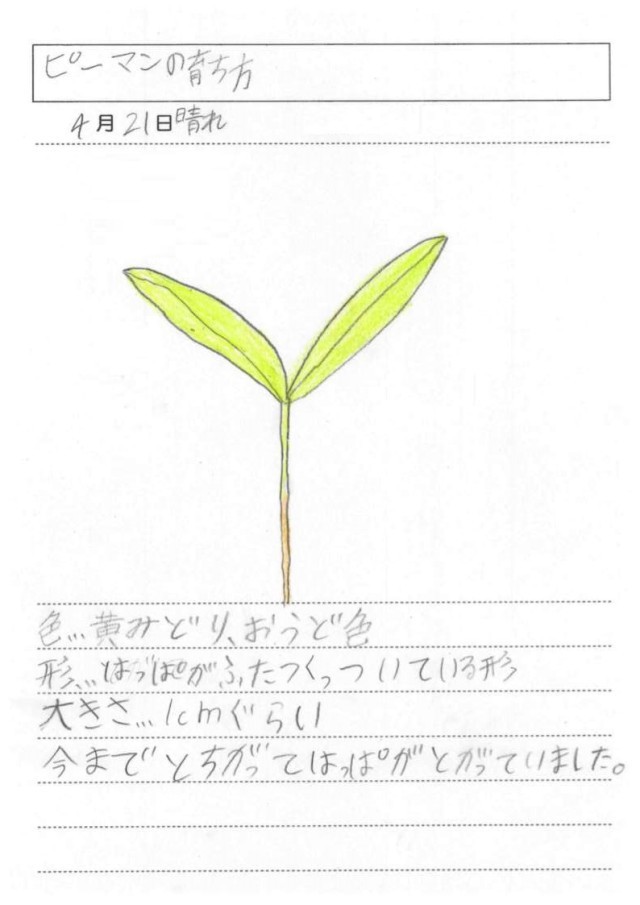 ピーマンの育ち方
4月21日晴れ
色…黄みどり、おうど色
形…はっぱがふたつくっついている形
大きさ…1cmぐらい
今までとちがってはっぱがとがっていました。